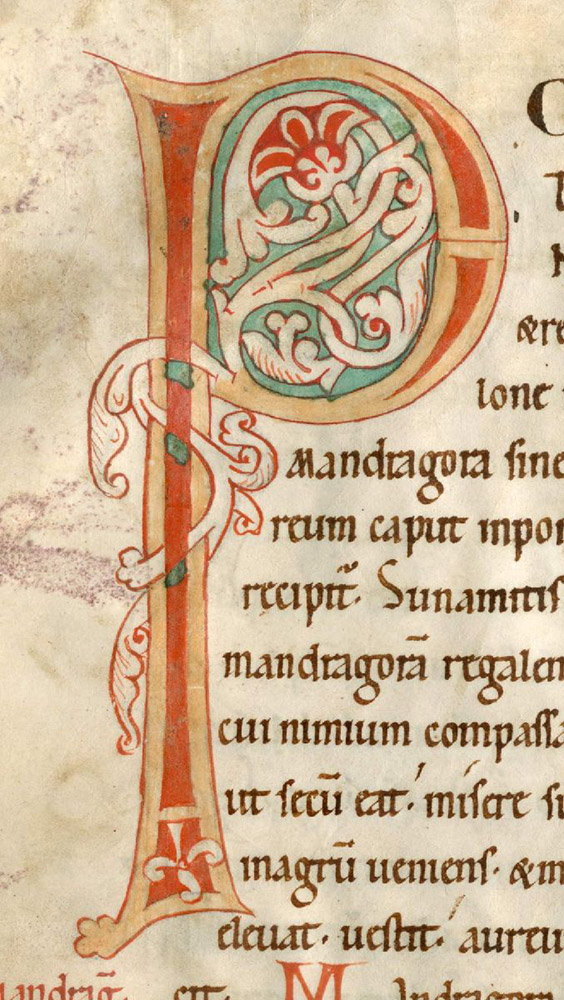 P
ære
lone
Mandragora sine
reum caput inpo
recipit̄. Sunamitis
mandragorā regalem
cui nimium compassa
ut secū eat. misere su
magrū ueniens. æm
eleuat. uestit. aureu
mandrag̅ ert. M andragora